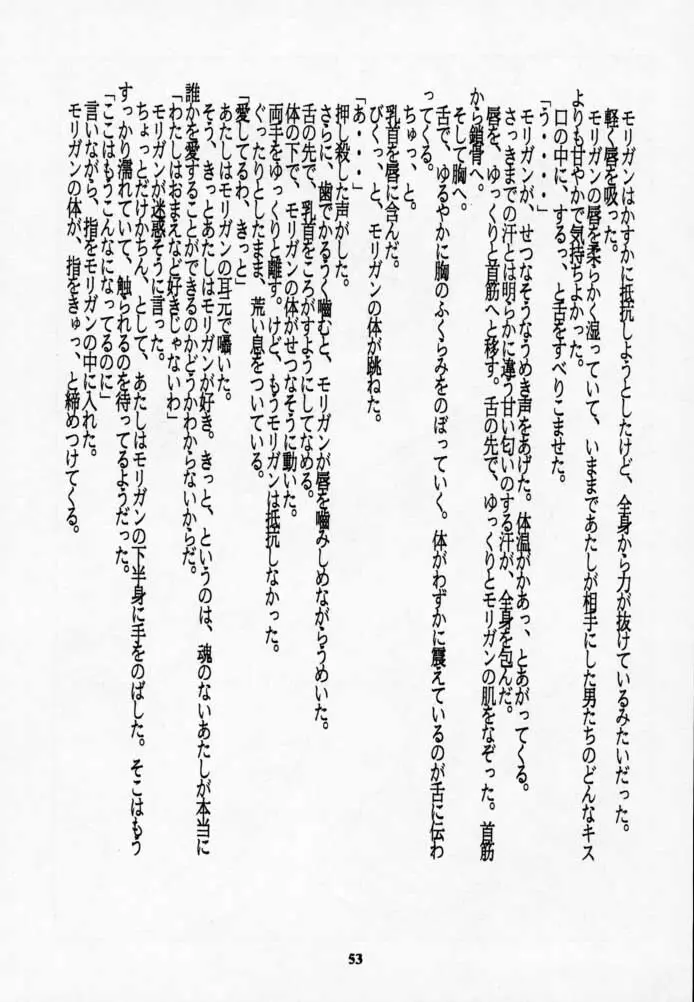 モリガンはかすかに抵抗しようとしたけど、全身から力が抜けているみたいだった。
軽く唇を吸った。
モリガンの唇を柔らかく湿っていて、いままであたしが相手にした男たちのどんなキス
よりも甘やかで気持ちよかった。
口の中に、するっ、と舌をすべりこませた。
「う・・・・」
モリガンが、せつなそうなうめき声をあげた。体温がかあっ、とあがってくる。
さっきまでの汗とは明らかに違う甘い匂いのする汗が、全身を包んだ。
唇を、ゆっくりと首筋へと移す。舌の先で、ゆっくりとモリガンの肌をなぞった。首筋
から鎖骨へ。
そして胸へ。
舌で、ゆるやかに胸のふくらみをのぼっていく。体がわずかに震えているのが舌に伝わ
ってくる。
ちゅっ、と。
乳首を唇に含んだ。
びくっ、と、モリガンの体が跳ねた。
「あ・・・」
押し殺した声がした。
さらに、歯でかるうく嚙むと、モリガンが唇を嚙みしめながらうめいた。
舌の先で、乳首をころがすようにしてなめる。
体の下で、モリガンの体がせつなそうに動いた。
両手をゆっくりと離す。けど、もうモリガンは抵抗しなかった。
ぐったりとしたまま、荒い息をついている。
「愛してるわ、きっと」
あたしはモリガンの耳元で囁いた。
そう、きっとあたしはモリガンが好き。きっと、というのは、魂のないあたしが本当に
誰かを愛することができるのかどうかわからないからだ。
「わたしはおまえなど好きじゃないわ」
モリガンが迷惑そうに言った。
ちょっとだけかちん、として、あたしはモリガンの下半身に手をのばした。そこはもう
すっかり濡れていて、触られるのを待ってるようだった。
「ここはもうこんなになってるのに」
言いながら、指をモリガンの中に入れた。
モリガンの体が、指をきゅっ、と締めつけてくる。
53